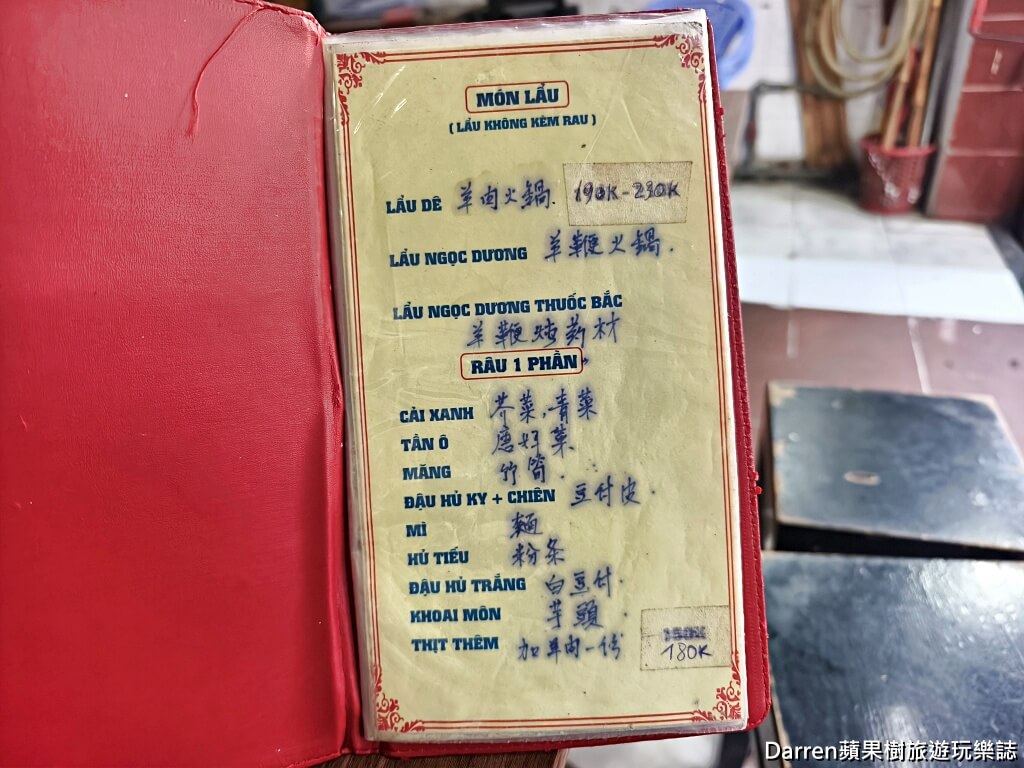 MÓN LẨU
( LẨU KHÔNG KÈM RAU )
LẨU DÊ 羊肉火鍋. 190K-290K
LẨU NGỌC DƯƠNG 羊鞭火鍋.
LẨU NGỌC DƯƠNG THUỐC BẮC
羊鞭 药材
RÂU 1 PHẦN
CẢI XANH 芥菜,青菜
TẦN Ô 唐好菜
MĂNG 竹筍.
ĐẬU HỦ KY + CHIÊN 豆付皮.
MÌ 麵
HỦ TIẾU 粉条
ĐẬU HỦ TRẮNG 白豆付.
KHOAI MÔN 芋頭.
THỊT THÊM 加羊肉一份 180K
Darren蘋果樹旅遊玩樂誌